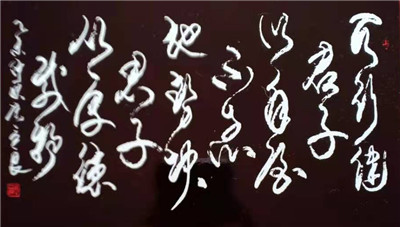 天行健
君子
以自强
不息
地势坤
君子
以厚德
载物